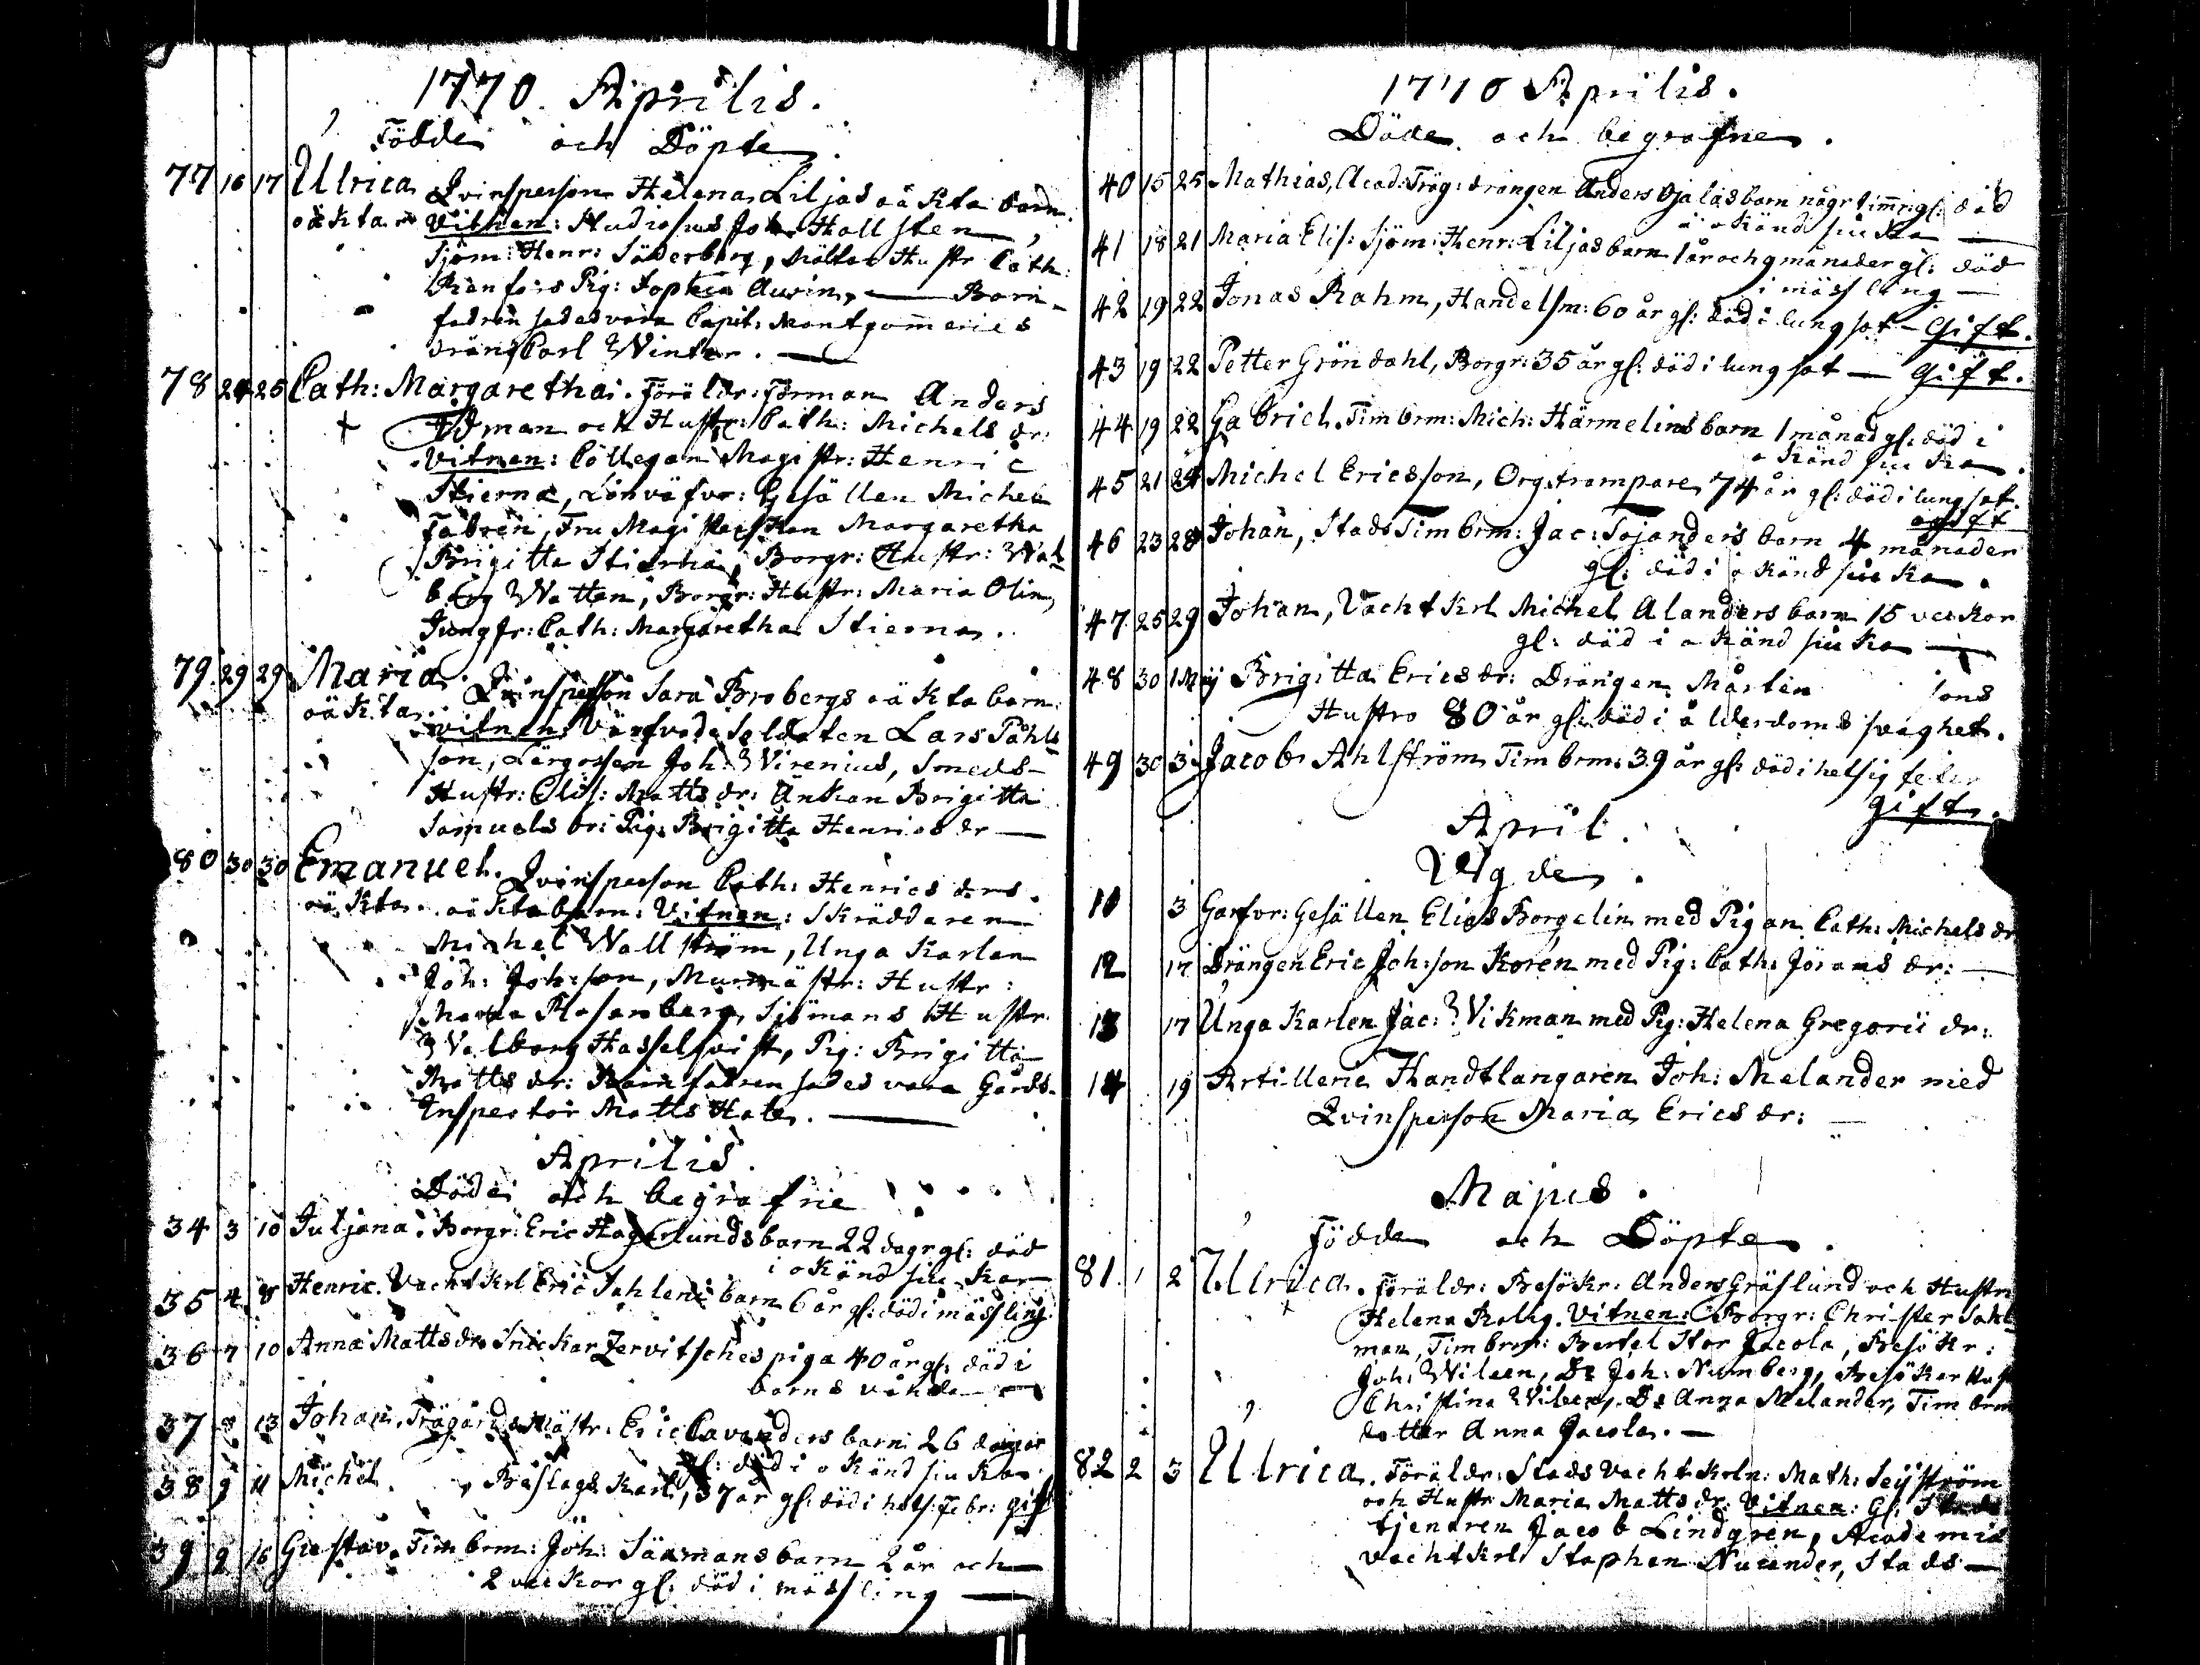 1770. Aprilis.
Födde och Döpte.
77 16 17 Ulrica Qvinsperson Helena Liljas oäkta barn.
oäkta Vitnen: Studiosus Joh: Hallsten,
Sjöm: Henr: Söderberg, Hustr Cath:
Pig: Sophia Aurin, — Barn-
fadren sades vara Capit: Montgommeries
dräng Carl Winter. —
78 24 25 Cath: Margaretha. Föräldr: Förman Anders
Edman och Hustr: Cath: Michels dr:
Vitnen: Collegan Magistr: Henric
Stierna, Gesällen Michel
Fabren, Fru Magisterskan Margaretha
Brigitta Stierna, Borgr: Hustr: Wal
borg Watten, Borgr: Hustr: Maria Olin,
Jungfr: Cath: Margaretha Stierna.
79 29 29 Maria. Qvinsperson Sara Brobergs oäkta barn.
oäkta. vitnen: Värfvade Soldaten Lars Påhls
son, Joh: Wirenius, Smeds-
Hustr: Elis: Matts dr: Änkan Brigitta
Samuels dr: Pig: Brigitta Henrics dr —
80 30 30 Emanuel. Qvinsperson Cath: Henrics drs.
oäkta. oäkta barn: Vitnen: Skräddaren
Michel Wallström, Unga Karlen
Joh: Joh:son, Murmästr: Hustr:
Maria Rosenberg, Sjömans Hustr
Walborg Hasselqvist, Pig: Brigitta
Matts dr: Barnfadren sades vara Gårds-
Inspector Matts Hate. —
Aprilis.
Döde och begrafne
34 3 10 Juljana. Borgr: Eric Hagerlunds barn 22 dagr gl: död
i okänd siuka
35 4 8 Henric. Vachtkrl Eric Sahlens barn 6 år gl: död i mässling
36 7 10 Anna Matts dr Snickar Zervitsches piga 40 år gl: död i
barns vånda —
37 8 13 Johan, Trägårdsmästr: Eric Cavanders barn 26 dagar
gl: död i okänd siuka
38 9 11 Michel Beslags Karl, 37 år gl: död i hets: febr: gift
39 9 16 Gustav. Timbrm: Joh: Säxmans barn 2 år och
2 veckor gl: död i mässling —
1770 Aprilis.
Döde och begrafne.
40 15 25 Mathias, Acad: Träg: drängen Anders Ojalas barn någr timr gl: död
i okänd siuka —
41 18 21 Maria Elis: Sjöm: Henr: Liljas barn 1 år och 9 månader gl: död
i mässling —
42 19 22 Jonas Rahm, Handelsm: 60 år gl: död i lungsot — Gift.
43 19 22 Petter Gröndahl, Borgr: 35 år gl: död i lungsot — Gift.
44 19 22 Gabriel. Timbrm: Mich: Härmelins barn 1 månad gl: död i
okänd siuka.
45 21 24 Michel Ericsson, Orgtrampare, 74 år gl: död i lungsot
ogift
46 23 28 Johan, Stads Timbrm: Jac: Sojanders barn 4 månader
gl: död i okänd siuka.
47 25 29 Johan, Vachtkrl Michel Alanders barn 15 veckor
gl: död i okänd siuka —
48 30 1 Maj Brigitta Erics dr: Drängen Mårten sons
Hustro 80 år gl: död i ålderdoms svaghet.
49 30 3 Jacob Ahlström Timbrm: 39 år gl: död i hetsig feber
gift.
April.
Wigde.
11 3 Garfvr: Gesällen Elias Borgelin med Pigan Cath: Michels dr
12 17 Drängen Eric Joh:son Korén med Pig: Cath: Jörans dr: —
13 17 Unga Karlen Jac: Wikman med Pig: Helena Gregorii dr:
14 19 Artillerie Handtlangaren Joh: Melander med
Qvinsperson Maria Erics dr: —
Majus.
Födde och Döpte.
81 1 2 Ulrica. Föräldr: Besökr: Anders Gräslund och Hustru
Helena Vitnen: Borgr: Christer Sahl
man, Timbrm: Bertel Stor Jacola, Besökr:
Joh: Wileen, Dr Joh: Numberg, Besökar Hust
Christina Wiberg, Ds Anna Melander, Timbrm
dotter Anna Jacola. —
82 2 3 Ulrica. Föräldr: Stads Vachtkrln: Math: Seijström
och Hustr Maria Matts dr: Vitnen: Gl: Stads
tjenaren Jacob Lindgren, Academie
vachtkrl Staphan Nucander, Stads —